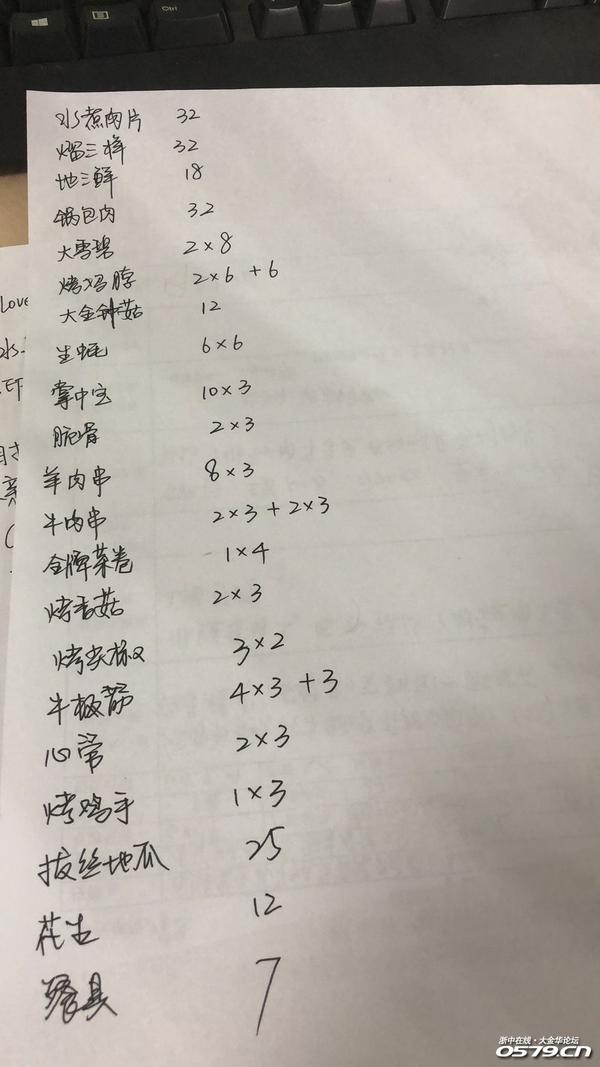 Ctrl
水煮肉片 32
熘三样 32
地三鲜 18
锅包肉 32
大雪碧 2×8
烤鸡脖 2×6 +6
大金钟菇 12
生蚝 6×6
掌中宝 10×3
脆骨 2×3
羊肉串 8×3
牛肉串 2×3 + 2×3
金牌菜卷 1×4
烤香菇 2×3
烤尖椒 3×2
牛板筋 4×3 +3
心管 2×3
烤鸡手 1×3
拔丝地瓜 25
花生 12
餐具 7
Love
水
浙中在线·大金华论坛
0579.CN